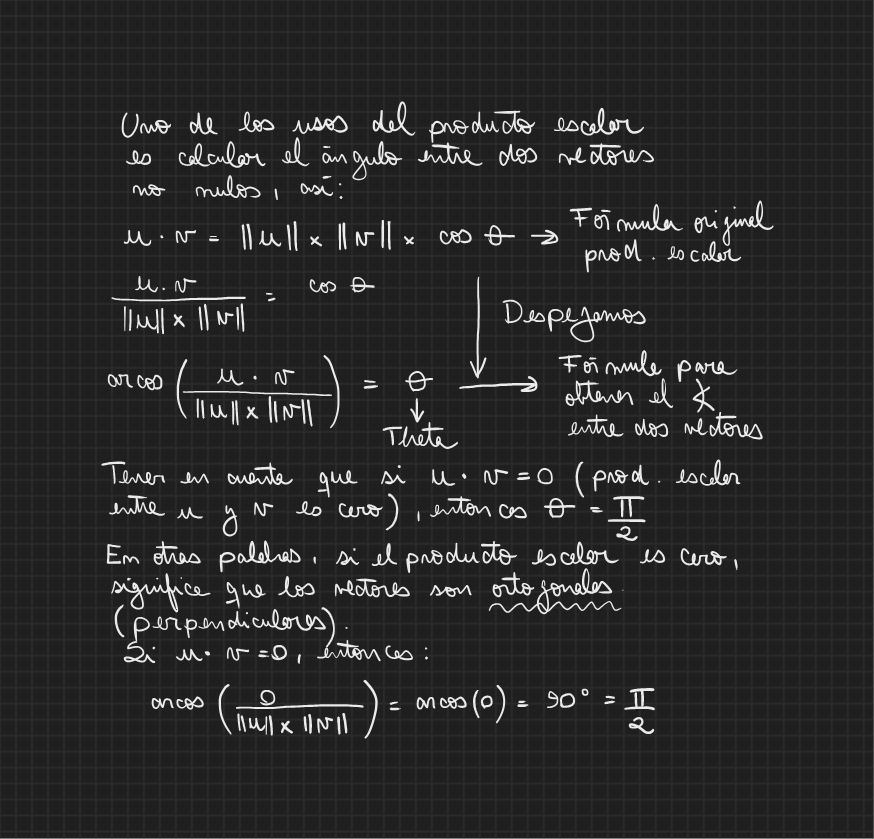 Uno de los usos del producto escalar
es calcular el ángulo entre dos vectores
no nulos, así:
u · v = ||u|| × ||v|| × cos θ → Fórmula original
prod. escalar
u · v / ||u|| × ||v|| = cos θ
Despejamos
arcos (u · v / ||u|| × ||v||) = θ → Fórmula para
obtener el ∡
entre dos vectores
Theta
Tener en cuenta que si u · v = 0 (prod. escalar
entre u y v es cero), entonces θ = π/2
En otras palabras, si el producto escalar es cero,
significa que los vectores son ortogonales
(perpendiculares).
Si u · v = 0, entonces:
arcos (0 / ||u|| × ||v||) = arcos(0) = 90° = π/2